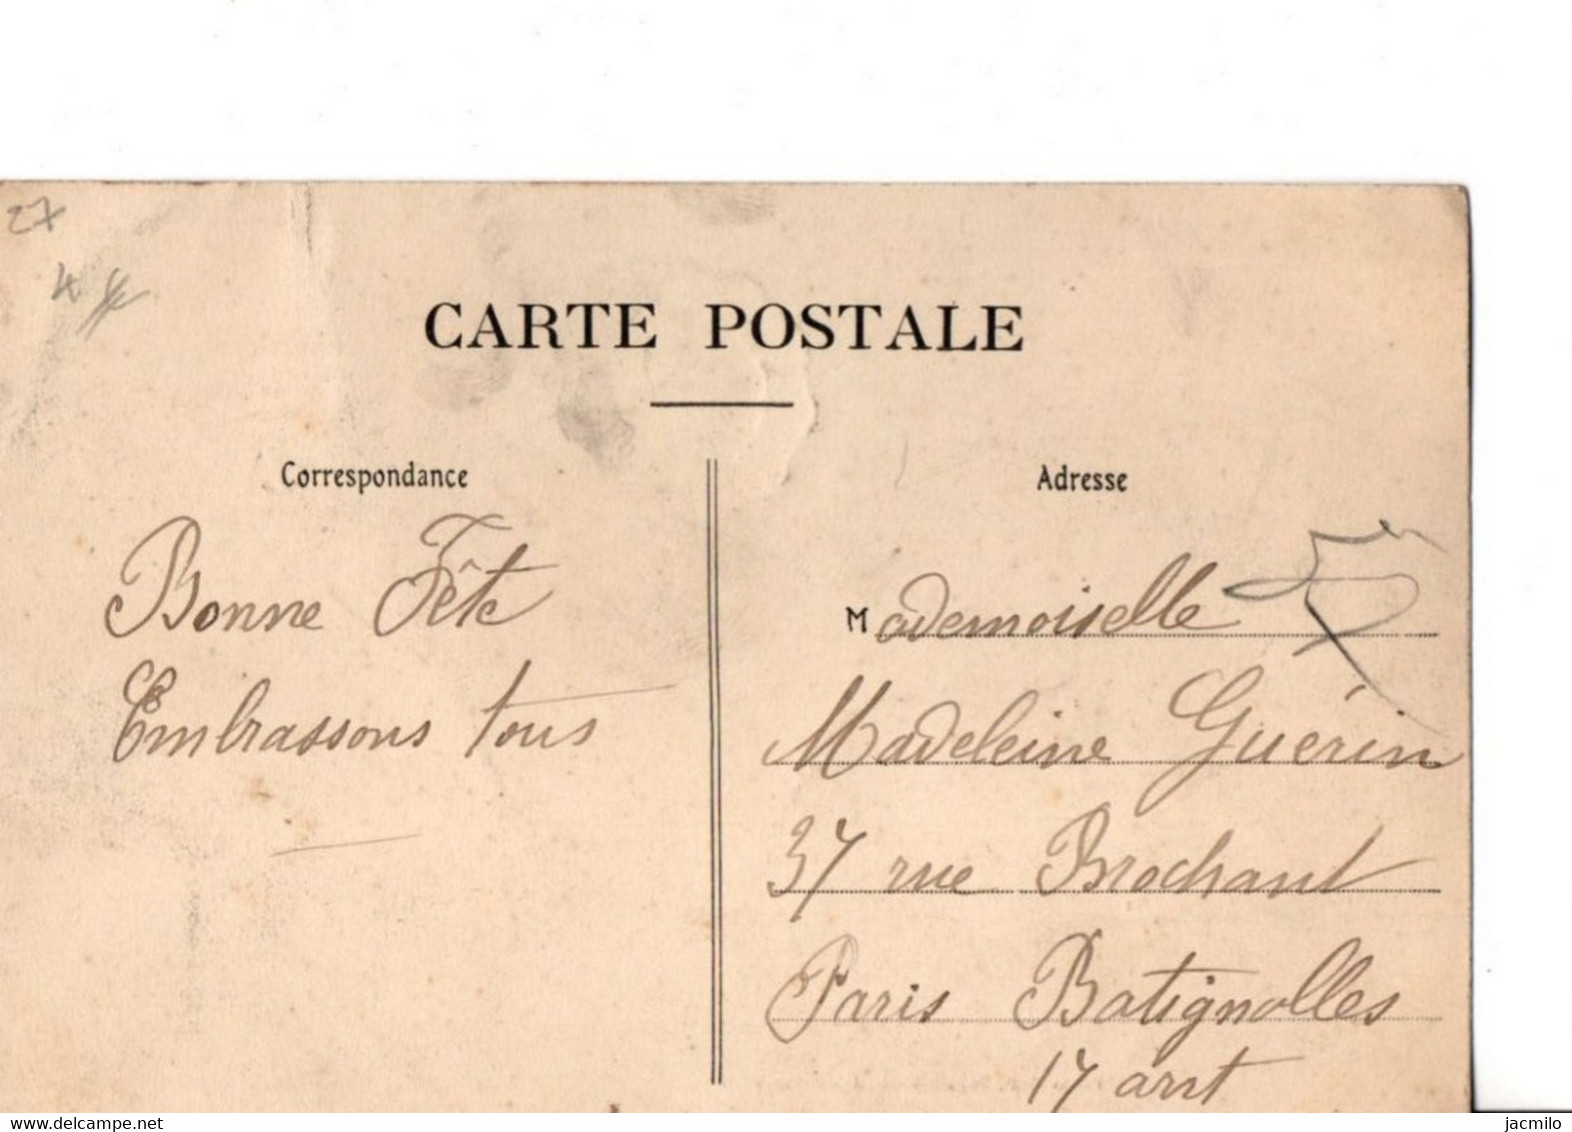 27
4
CARTE POSTALE
Correspondance
Bonne Fête
Embrassons tous
Adresse
Mademoiselle
Madeleine Guérin
37 rue Brochant
Paris Batignolles
17 arrt
jacmilo